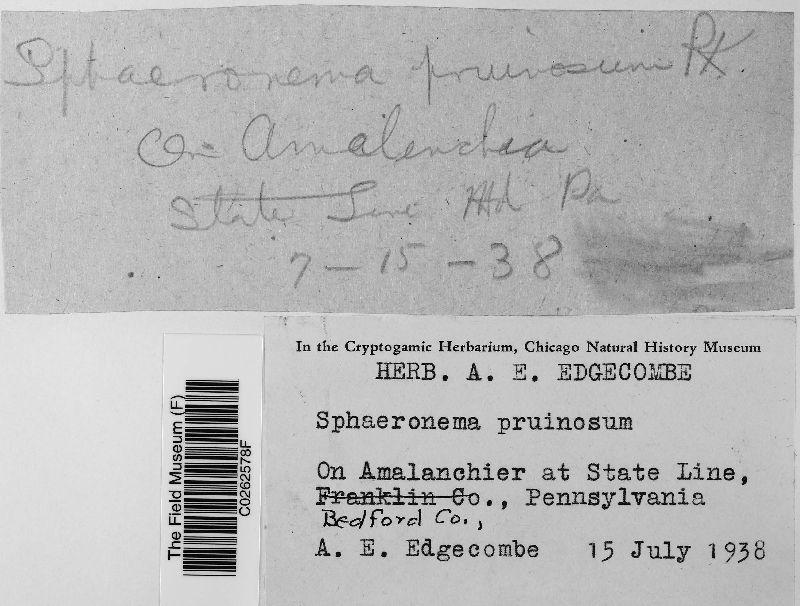 Sphaeronema pruinosum Pk.
On Amalenchia
State Line Md Pa
7-15-38
In the Cryptogamic Herbarium, Chicago Natural History Museum
HERB. A. E. EDGECOMBE
Sphaeronema pruinosum
On Amalanchier at State Line,
Franklin Co., Pennsylvania
Bedford Co.,
A. E. Edgecombe 15 July 1938
The Field Museum (F)
C0262578F